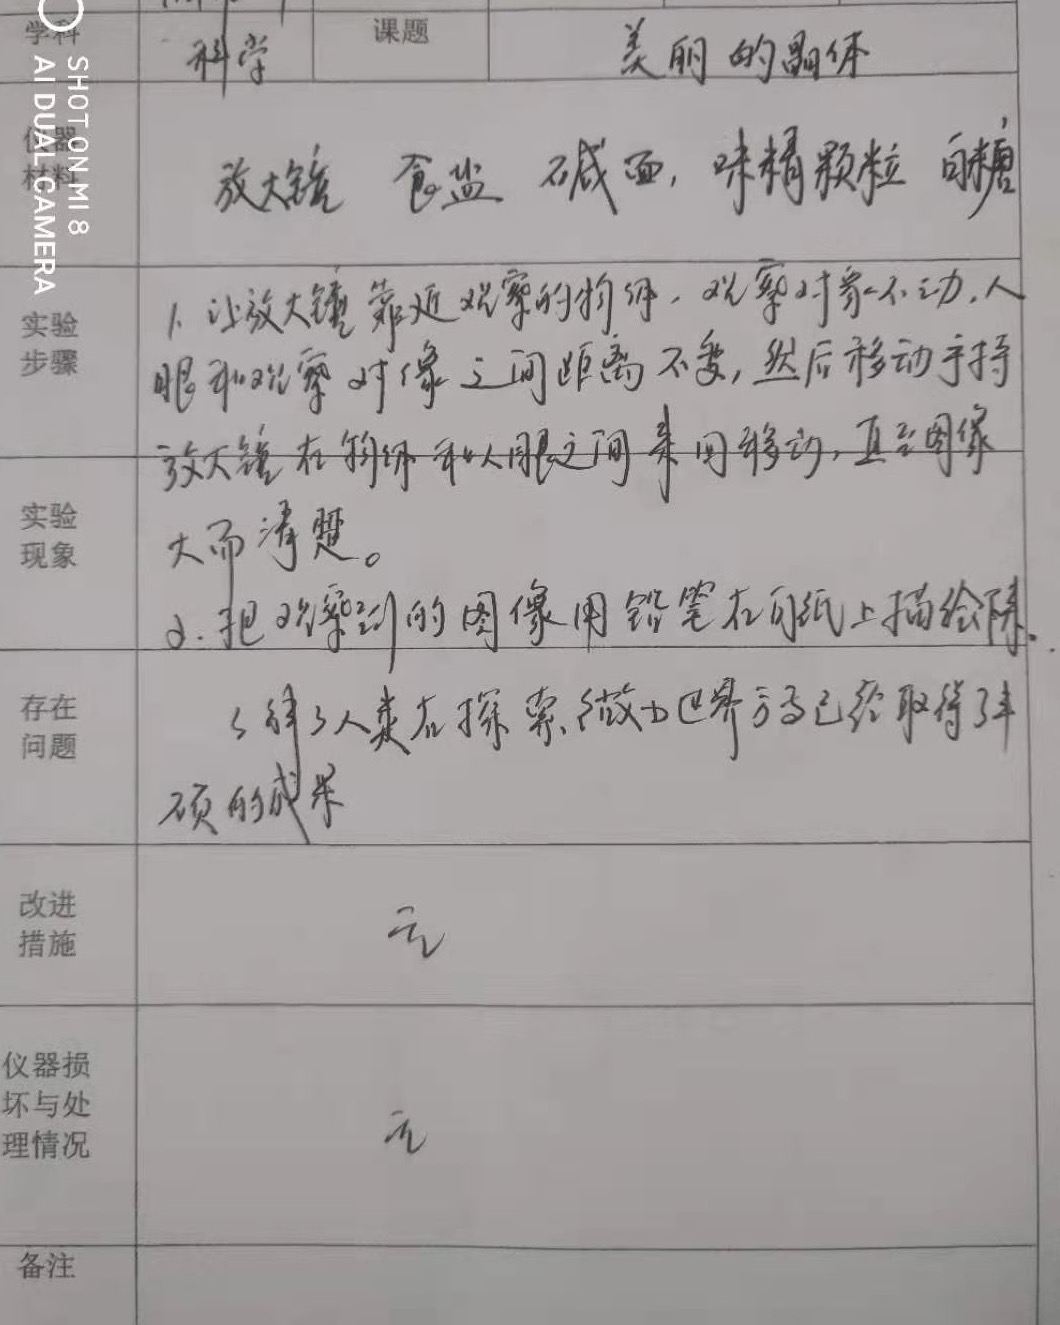 学科 科学 课题 美丽的晶体
仪器
材料
放大镜 食盐 碱面, 味精颗粒 白糖
实验
步骤
1. 让放大镜靠近观察的物体, 观察对象不动, 人
眼和观察对像之间距离不变, 然后移动手持
放大镜在物体和人眼之间来回移动, 直至图像
实验
现象
大而清楚。
2. 把观察到的图像用铅笔在白纸上描绘
存在
问题
了解了人类在探索微小世界方面已经取得了丰
硕的成果
改进
措施
无
仪器损
坏与处
理情况
无
备注
SHOT ON MI 8
AI DUAL CAMERA